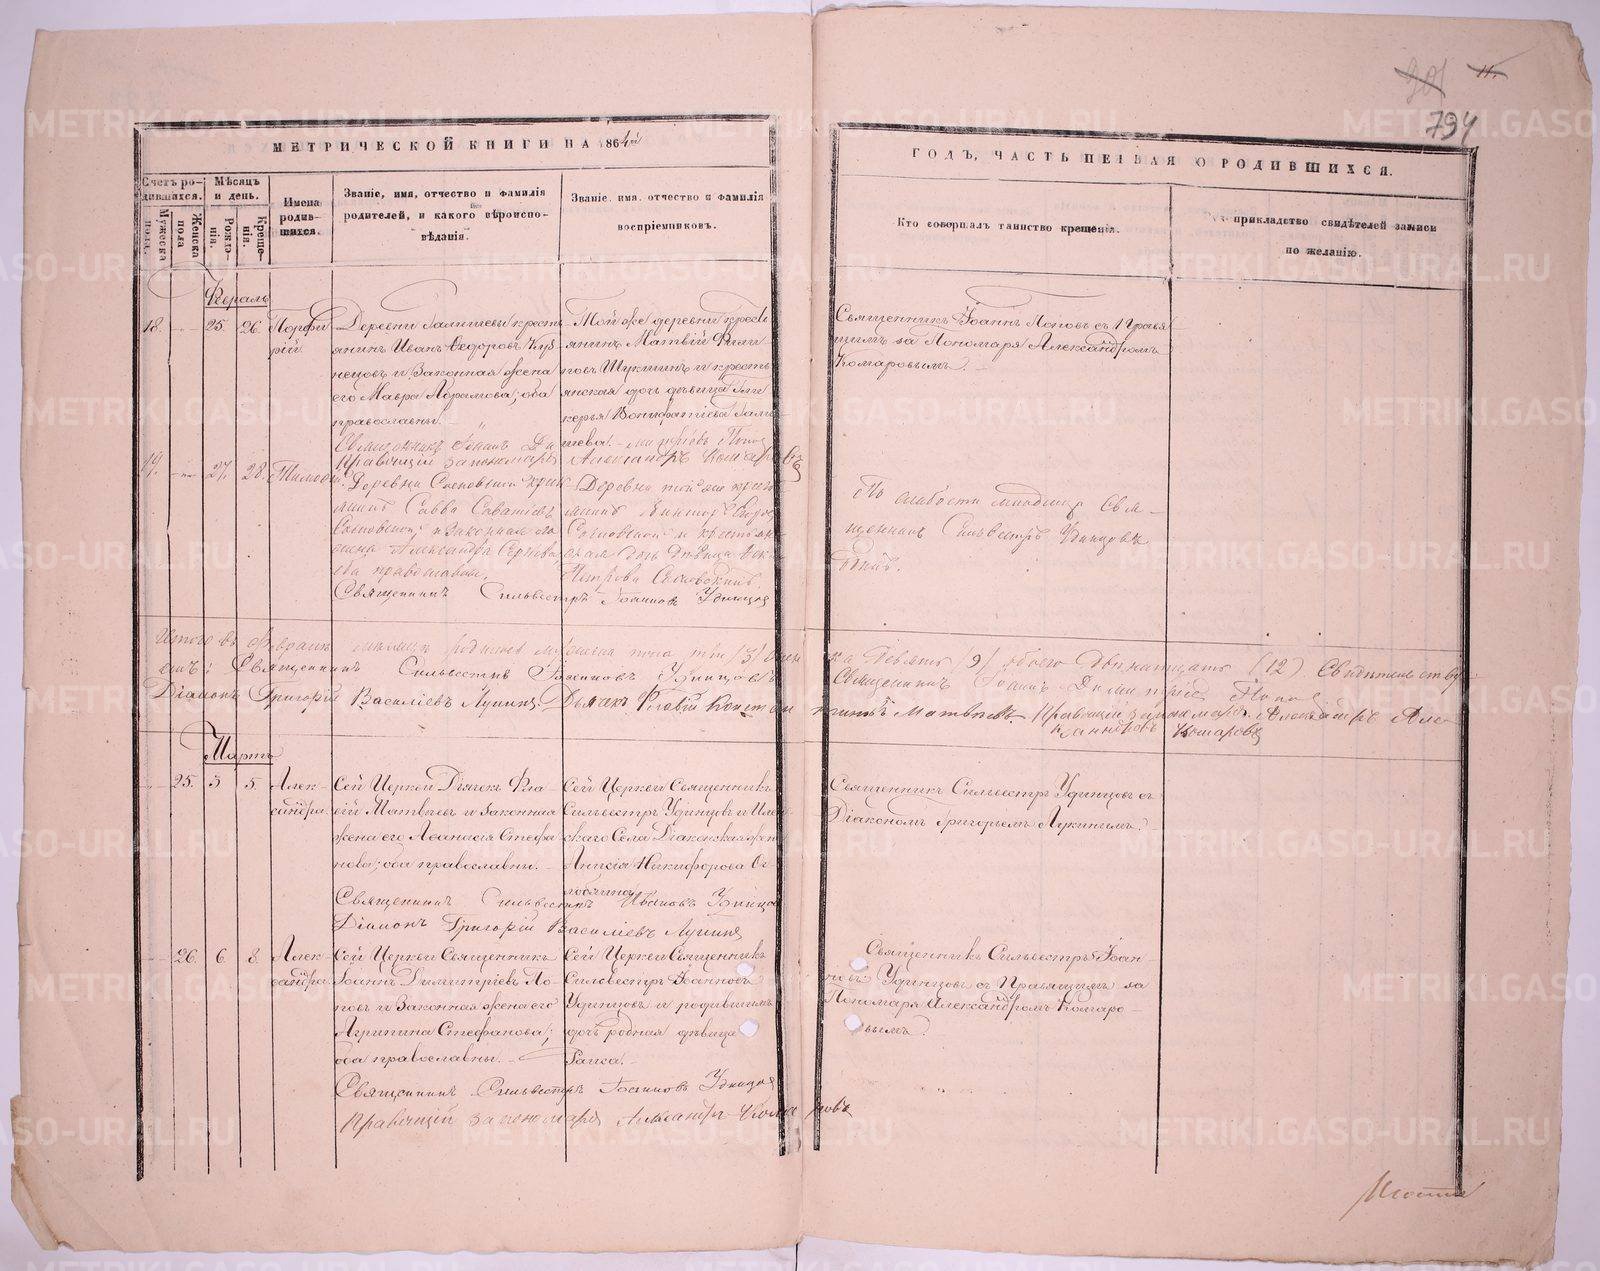 201 11.
794
МЕТРИЧЕСКОЙ КНИГИ НА 1864й
ГОДЪ, ЧАСТЬ ПЕРВАЯ О РОДИВШИХСЯ.
Счетъ родившихся.
Мужеска пола.
Женска пола
Мѣсяцъ и день.
Рожденія.
Крещенія.
Имена родившихся.
Званіе, имя, отчество и фамилія
родителей, и какого вѣроиспо-
вѣданія.
Званіе, имя, отчество и фамилія
воспріемниковъ.
Кто совершалъ таинство крещенія.
прикладство свидѣтелей записи
по желанію.
Февраль
18. 25. 26. Порфи
рій.
Деревни Галишевы кресть
янинъ Иванъ Ѳедоровъ Куз
нецовъ и Законная жена
его Мавра Абрамова; оба
православны.
Той же деревни крест
янинъ Матвій Фили
повъ Шукшинъ и кресть
янская дочь дѣвица Гли
керья Вонифатіева Гали
шева.
Священникъ Іоаннъ Поповъ съ Правя
щимъ за Пономаря Александромъ
Комаровымъ.
Священникъ Іоаннъ Ди митріевъ Попов
Правящій за пономаря Александръ Комаровъ
19. 27. 28. Тимофей.
Деревни Сосновской крест
янинъ Савва Саватіевъ
Сосновской; и Законная
жена Александра Сергіева,
оба православны.
Деревни той же крест
янинъ
Сосновской и крестьян
ская дочь Дѣвица
Петрова Сосновскихъ.
По слабости младенца Свя-
щенникъ Сильвестръ Удинцовъ
Священникъ Сильвестръ Іоанновъ Удинцов
Итого въ Февралѣ мѣсяцѣ родилось мужеска пола три /3/ жен
ска девять /9/ обоего Двенатцать (12). Свидѣтельству
емъ: Священникъ Сильвестръ Іоанновъ Удинцовъ
Священникъ Іоаннъ Димитріев Попов
Діаконъ Григорій Василіевъ Лукинъ. Дьячекъ Флавій Констан
тиновъ Матвѣевъ. Правящій за пономаря Александръ Але
ксандровъ Комаровъ
Мартъ
25. 3 5. Алек-
сандра.
Сей Церкви Дьячекъ Фла-
вій Матвѣевъ и Законная
жена его Аѳанасія Стефа
нова; оба православны.
Сей Церкви Священникъ
Сильвестръ Удинцовъ и
скаго Села Діаконская жен
Анисія Никифорова
Священникъ Сильвестръ Удинцовъ съ
Діакономъ Григорьемъ Лукинымъ.
Священникъ Сильвестръ Ивановъ Удинцо
Діаконъ Григорій Василіевъ Лукинъ
26. 6. 8. Алек-
сандра.
Сей Церкви Священникъ
Іоаннъ Димитріевъ По-
повъ и Законная жена его
Агрипина Стефанова;
оба православны.
Сей Церкви Священникъ
Сильвестръ Іоанновъ
Удинцовъ и родившимъ
дочь родная дѣвица
Раиса.
Священникъ Сильвестръ Іоан-
новъ Удинцовъ съ Правящимъ за
Пономаря Александромъ Комаро-
вымъ.
Священникъ Сильвестръ Іоанновъ Удинцов
Правящій за пономаря Александръ Комаровъ
METRIKI.GASO-URAL.RU